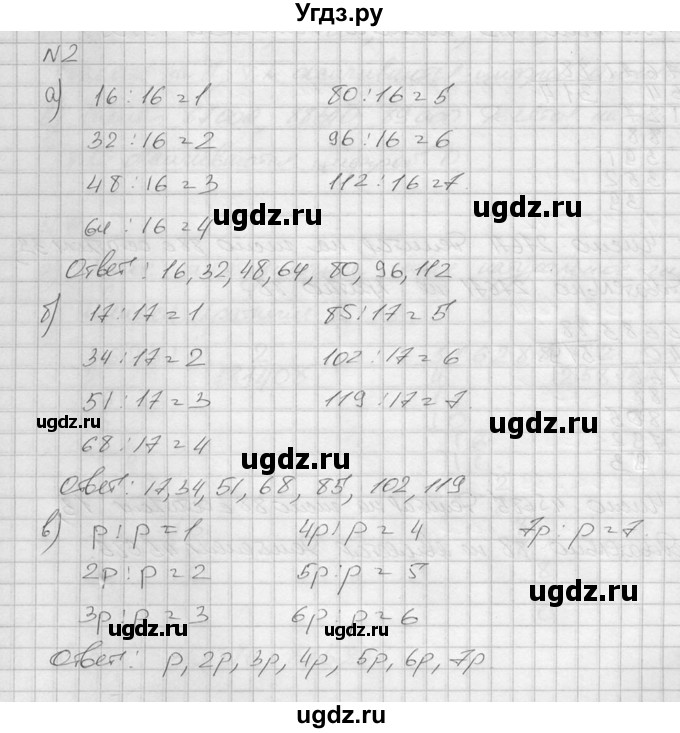 Угдз.ру
№2
а) 16 : 16 = 1 80 : 16 = 5
32 : 16 = 2 96 : 16 = 6
48 : 16 = 3 112 : 16 = 7.
64 : 16 = 4
ugdz.ru ugdz.ru
Ответ: 16, 32, 48, 64, 80, 96, 112
б) 17 : 17 = 1 85 : 17 = 5
34 : 17 = 2 102 : 17 = 6
51 : 17 = 3 119 : 17 = 7.
ugdz.ru ugdz.ru
68 : 17 = 4
ugdz.ru
Ответ: 17, 34, 51, 68, 85, 102, 119.
в) p : p = 1 4p : p = 4 7p : p = 7.
2p : p = 2 5p : p = 5
ugdz.ru
3p : p = 3 6p : p = 6
ugdz.ru ugdz.ru
Ответ: p, 2p, 3p, 4p, 5p, 6p, 7p.
ugdz.ru